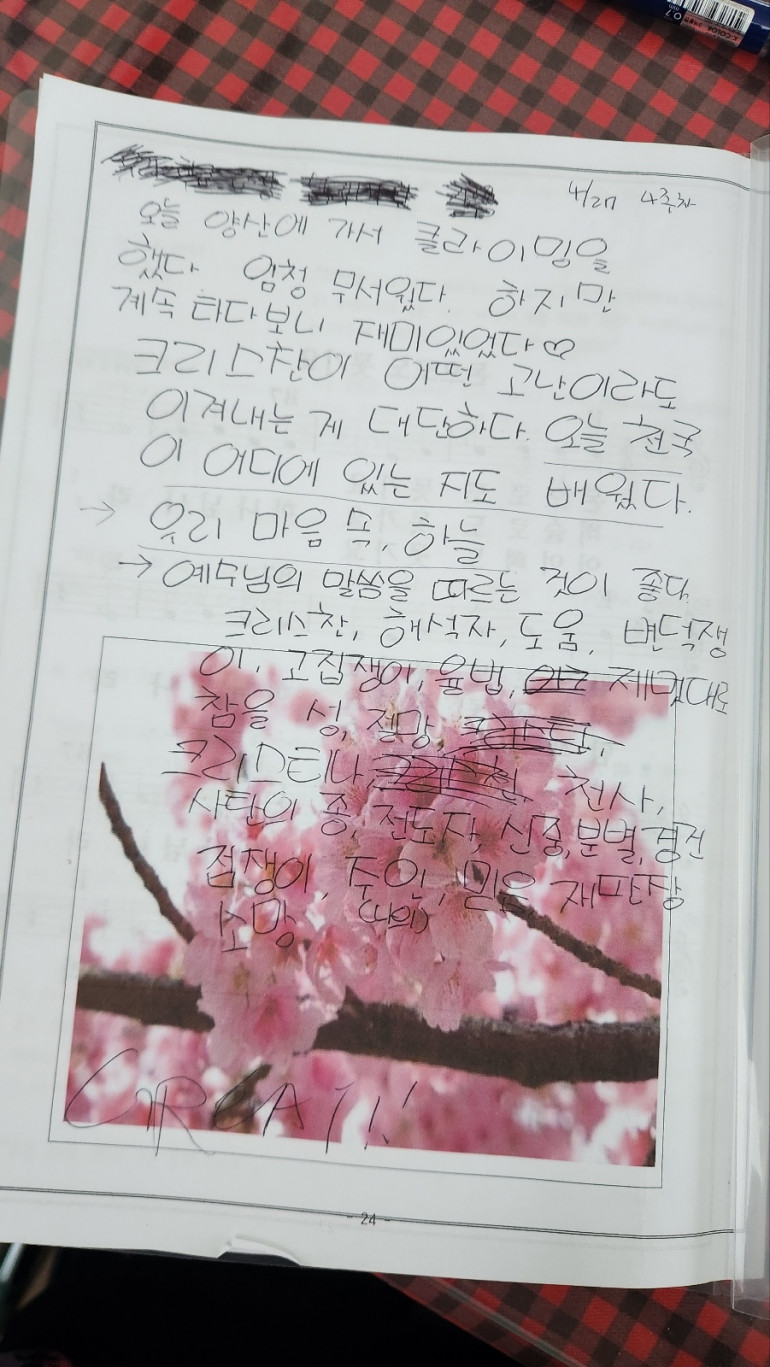 4/27 4주차
오늘 양산에 가서 클라이밍을
했다. 엄청 무서웠다. 하지만
계속 타다보니 재미있었다♡
크리스찬이 어떤 고난이라도
이겨내는 게 대단하다. 오늘 천국
이 어디에 있는 지도 배웠다.
→ 우리 마음 속, 하늘
→ 예수님의 말씀을 따르는 것이 좋다.
크리스찬, 해석자, 도움, 변덕쟁
이, 고집쟁이, 율법, 제멋대로
참을 성, 절망,
크리스티나 천사,
사탄의 종, 전도자, 신중, 분별, 경건
겁쟁이, 주인, 믿음 재판장
소망 (나의)
GREAT!!
- 24 -
0.7
mm